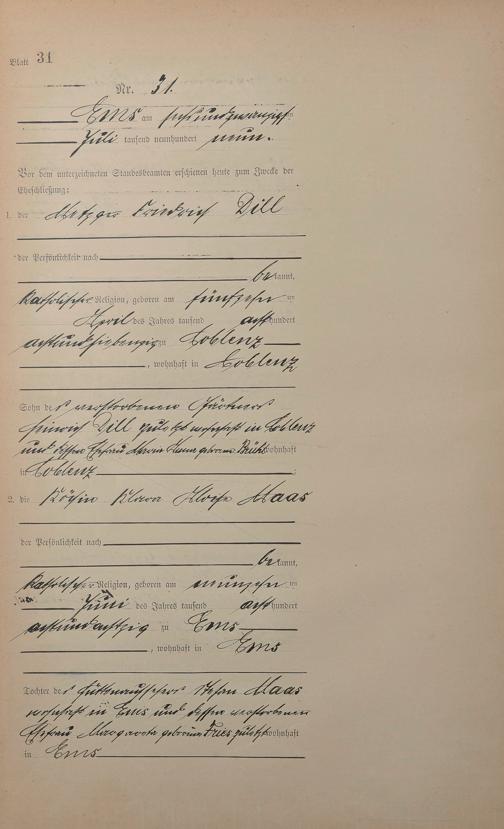 Blatt 31
Nr. 31.
Ems am sechsundzwanzigsten
Juli tausend neunhundert neun.
Vor dem unterzeichneten Standesbeamten erschienen heute zum Zwecke der
Eheschließung:
1. der Metzger Friedrich Dill
der Persönlichkeit nach
bekannt,
katholischer Religion, geboren am fünfzehnten
April des Jahres tausend achthundert
achtundsiebenzig zu Coblenz
, wohnhaft in Coblenz
Sohn des verstorbenen Gärtners
Heinrich Dill zuletzt wohnhaft in Coblenz
und dessen Ehefrau Maria Anna geborene wohnhaft
in Coblenz
2. die Köchin Klara Maas
der Persönlichkeit nach
bekannt,
katholischer Religion, geboren am neunzehnten
Juni des Jahres tausend achthundert
achtundachtzig zu Ems
, wohnhaft in Ems
Tochter des Hüttenaufsehers Stefan Maas
wohnhaft in Ems und dessen verstorbenen
Ehefrau Margareta geborene Fries zuletzt wohnhaft
in Ems